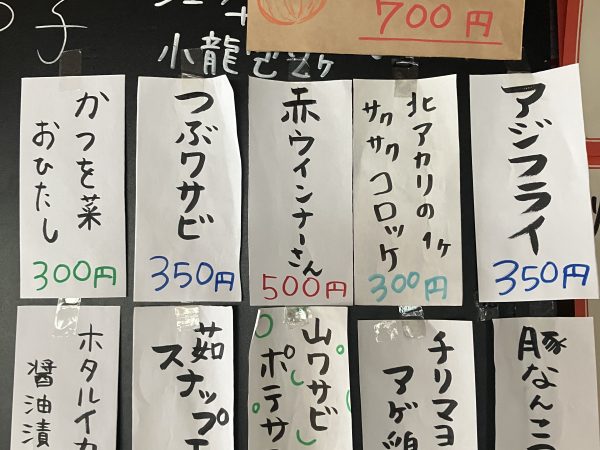 700円
小龍
アジフライ
350円
北アカリの
サクサクコロッケ
1ヶ
300円
赤ウインナーさん
500円
つぶワサビ
350円
かつを菜
おひたし
300円
豚なんこつ
チリマヨ
アゲ鶏
山ワサビ
ポテサ
茹
スナップエ
ホタルイカ
醤油漬